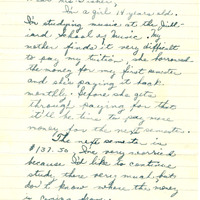 I'm a girl 14 years old.
In studying music at the Juil-
iard School of Music. My
mother finds it very difficult
to pay my tuition, she borrowed
the money for my first semester
and she's paying it back
monthly. Before she gets
through paying for that
it'll be time to pay more
money for the next semester.
The next semester is
$137.50. I'm very worried
because I'd like to continue
study there very much but
don't know where the money
is coming from.